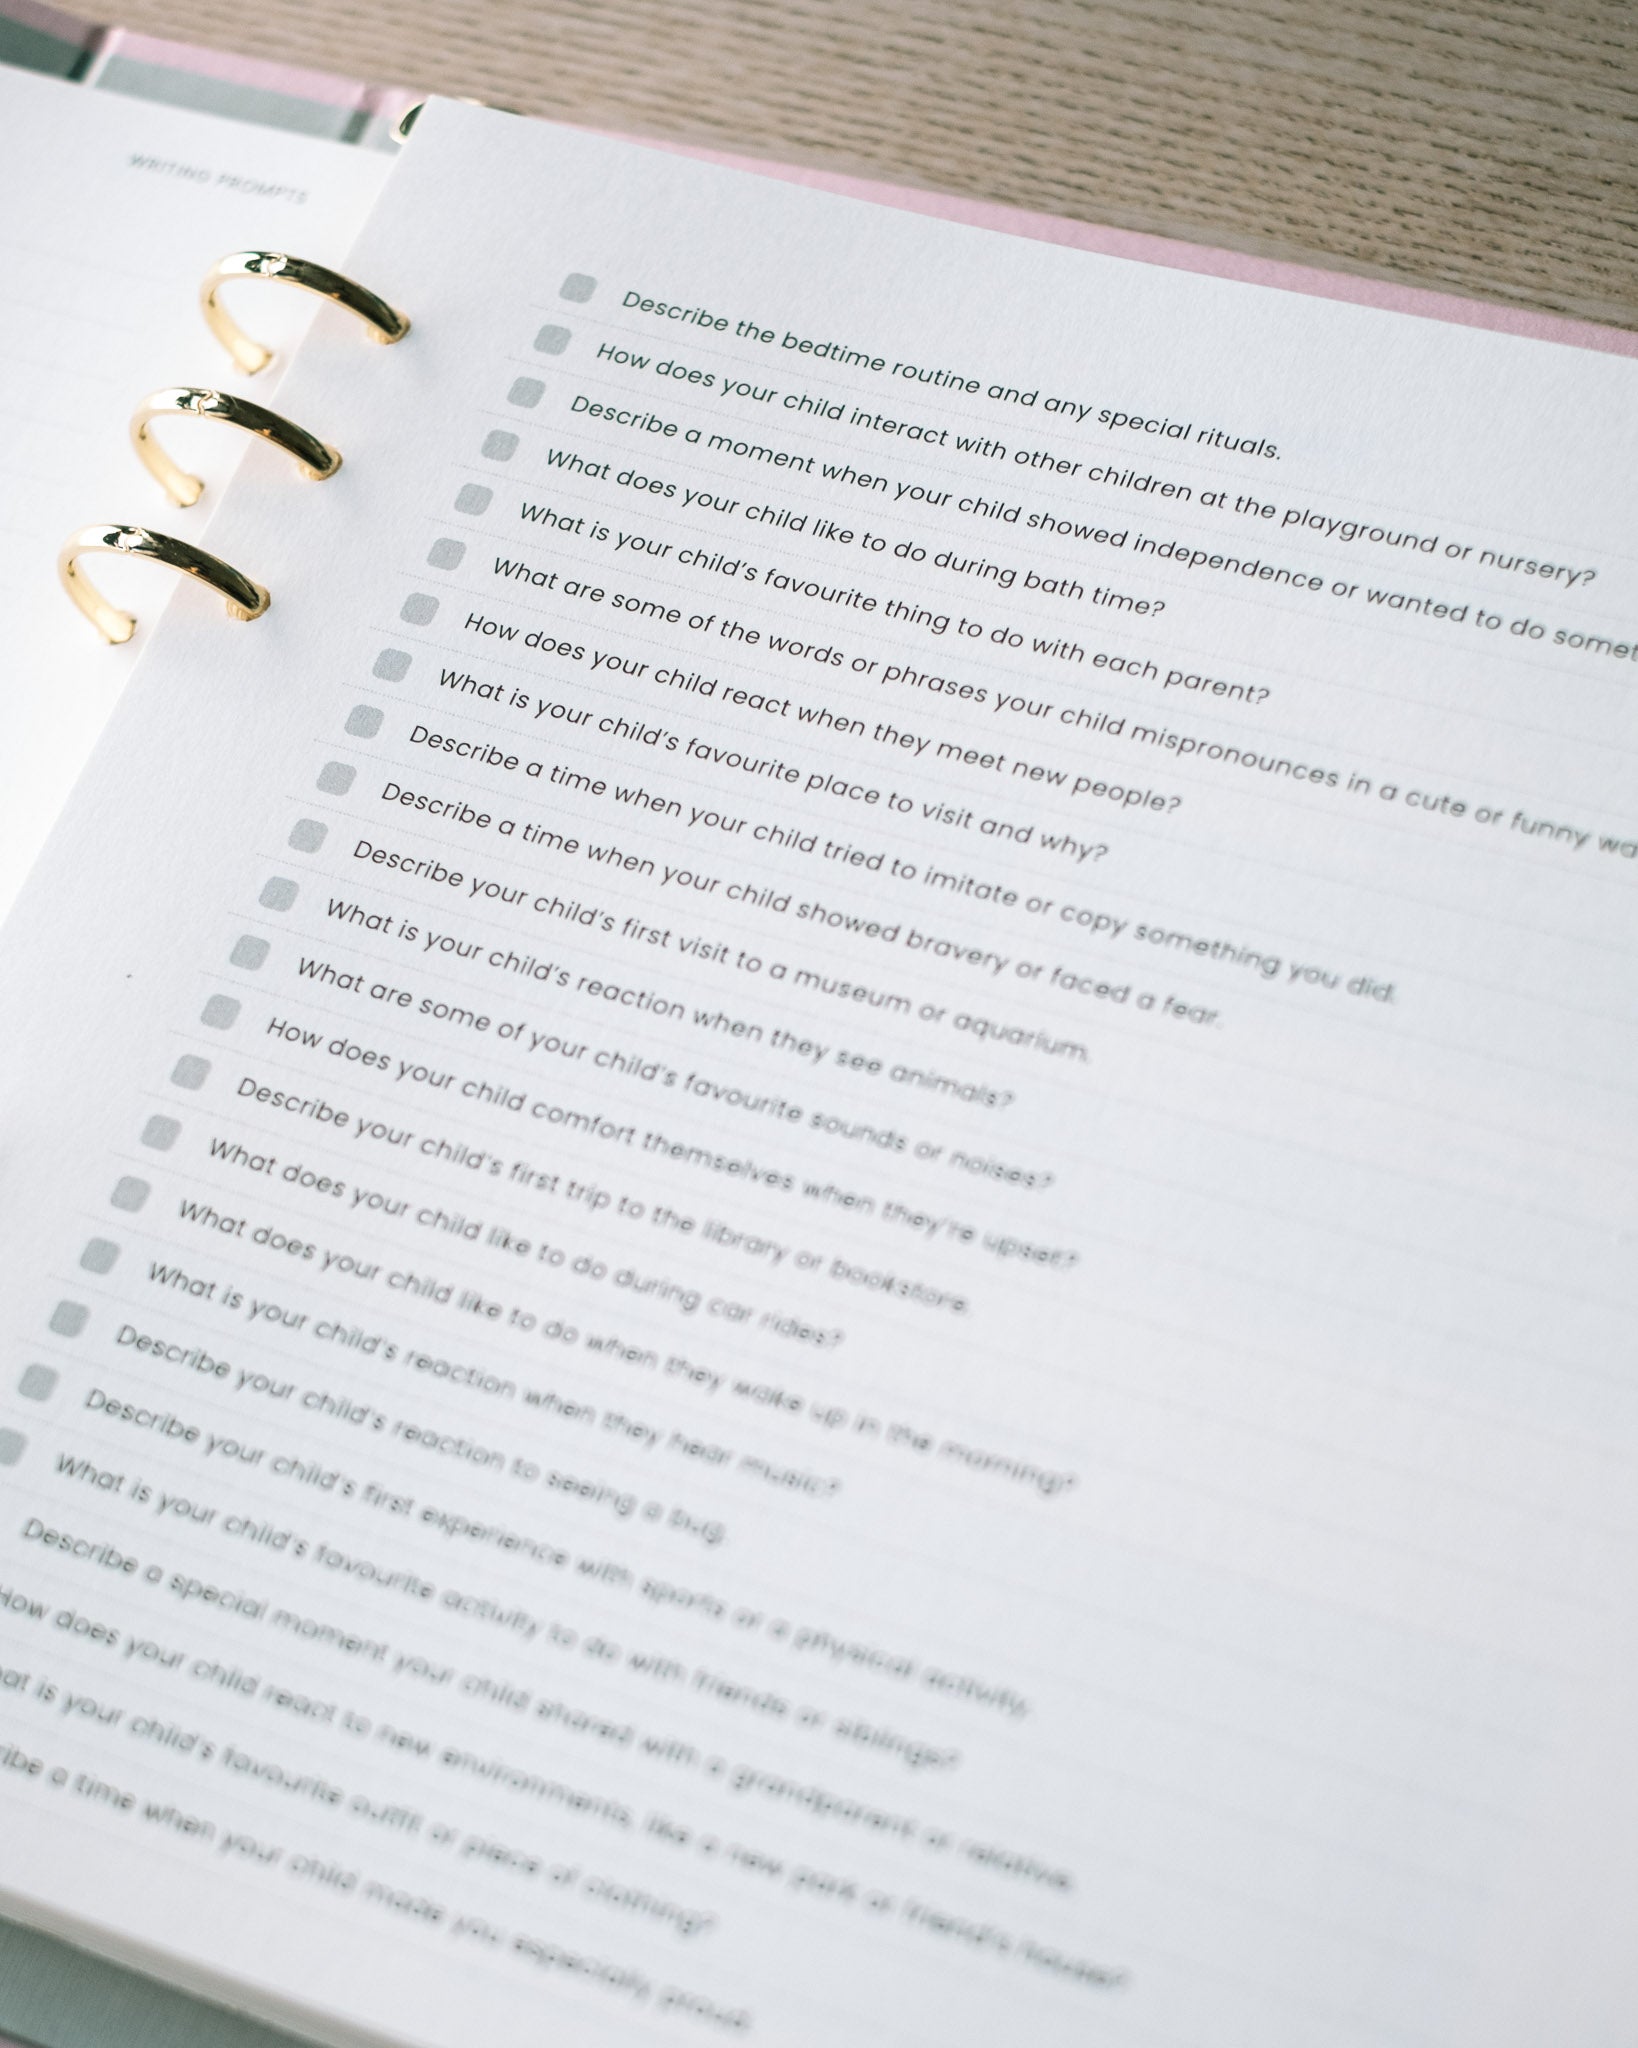 WRITING PROMPTS
Describe the bedtime routine and any special rituals.
How does your child interact with other children at the playground or nursery?
Describe a moment when your child showed independence or wanted to do somet
What does your child like to do during bath time?
What is your child's favourite thing to do with each parent?
What are some of the words or phrases your child mispronounces in a cute or funny wa
How does your child react when they meet new people?
What is your child's favourite place to visit and why?
Describe a time when your child tried to imitate or copy something you did.
Describe a time when your child showed bravery or faced a fear.
Describe your child's first visit to a museum or aquarium.
What is your child's reaction when they see animals?
What are some of your child's favourite sounds or noises?
How does your child comfort themselves when they're upset?
Describe your child's first trip to the library or bookstore.
What does your child like to do during car rides?
What does your child like to do when they wake up in the morning?
What is your child's reaction when they hear music?
Describe your child's reaction to seeing a bug.
Describe your child's first experience with sports or a physical activity.
What is your child's favourite activity to do with friends or siblings?
Describe a special moment your child shared with a grandparent or relative.
How does your child react to new environments, like a new park or friend's house?
at is your child's favourite outfit or piece of clothing?
ribe a time when your child made you especially proud.